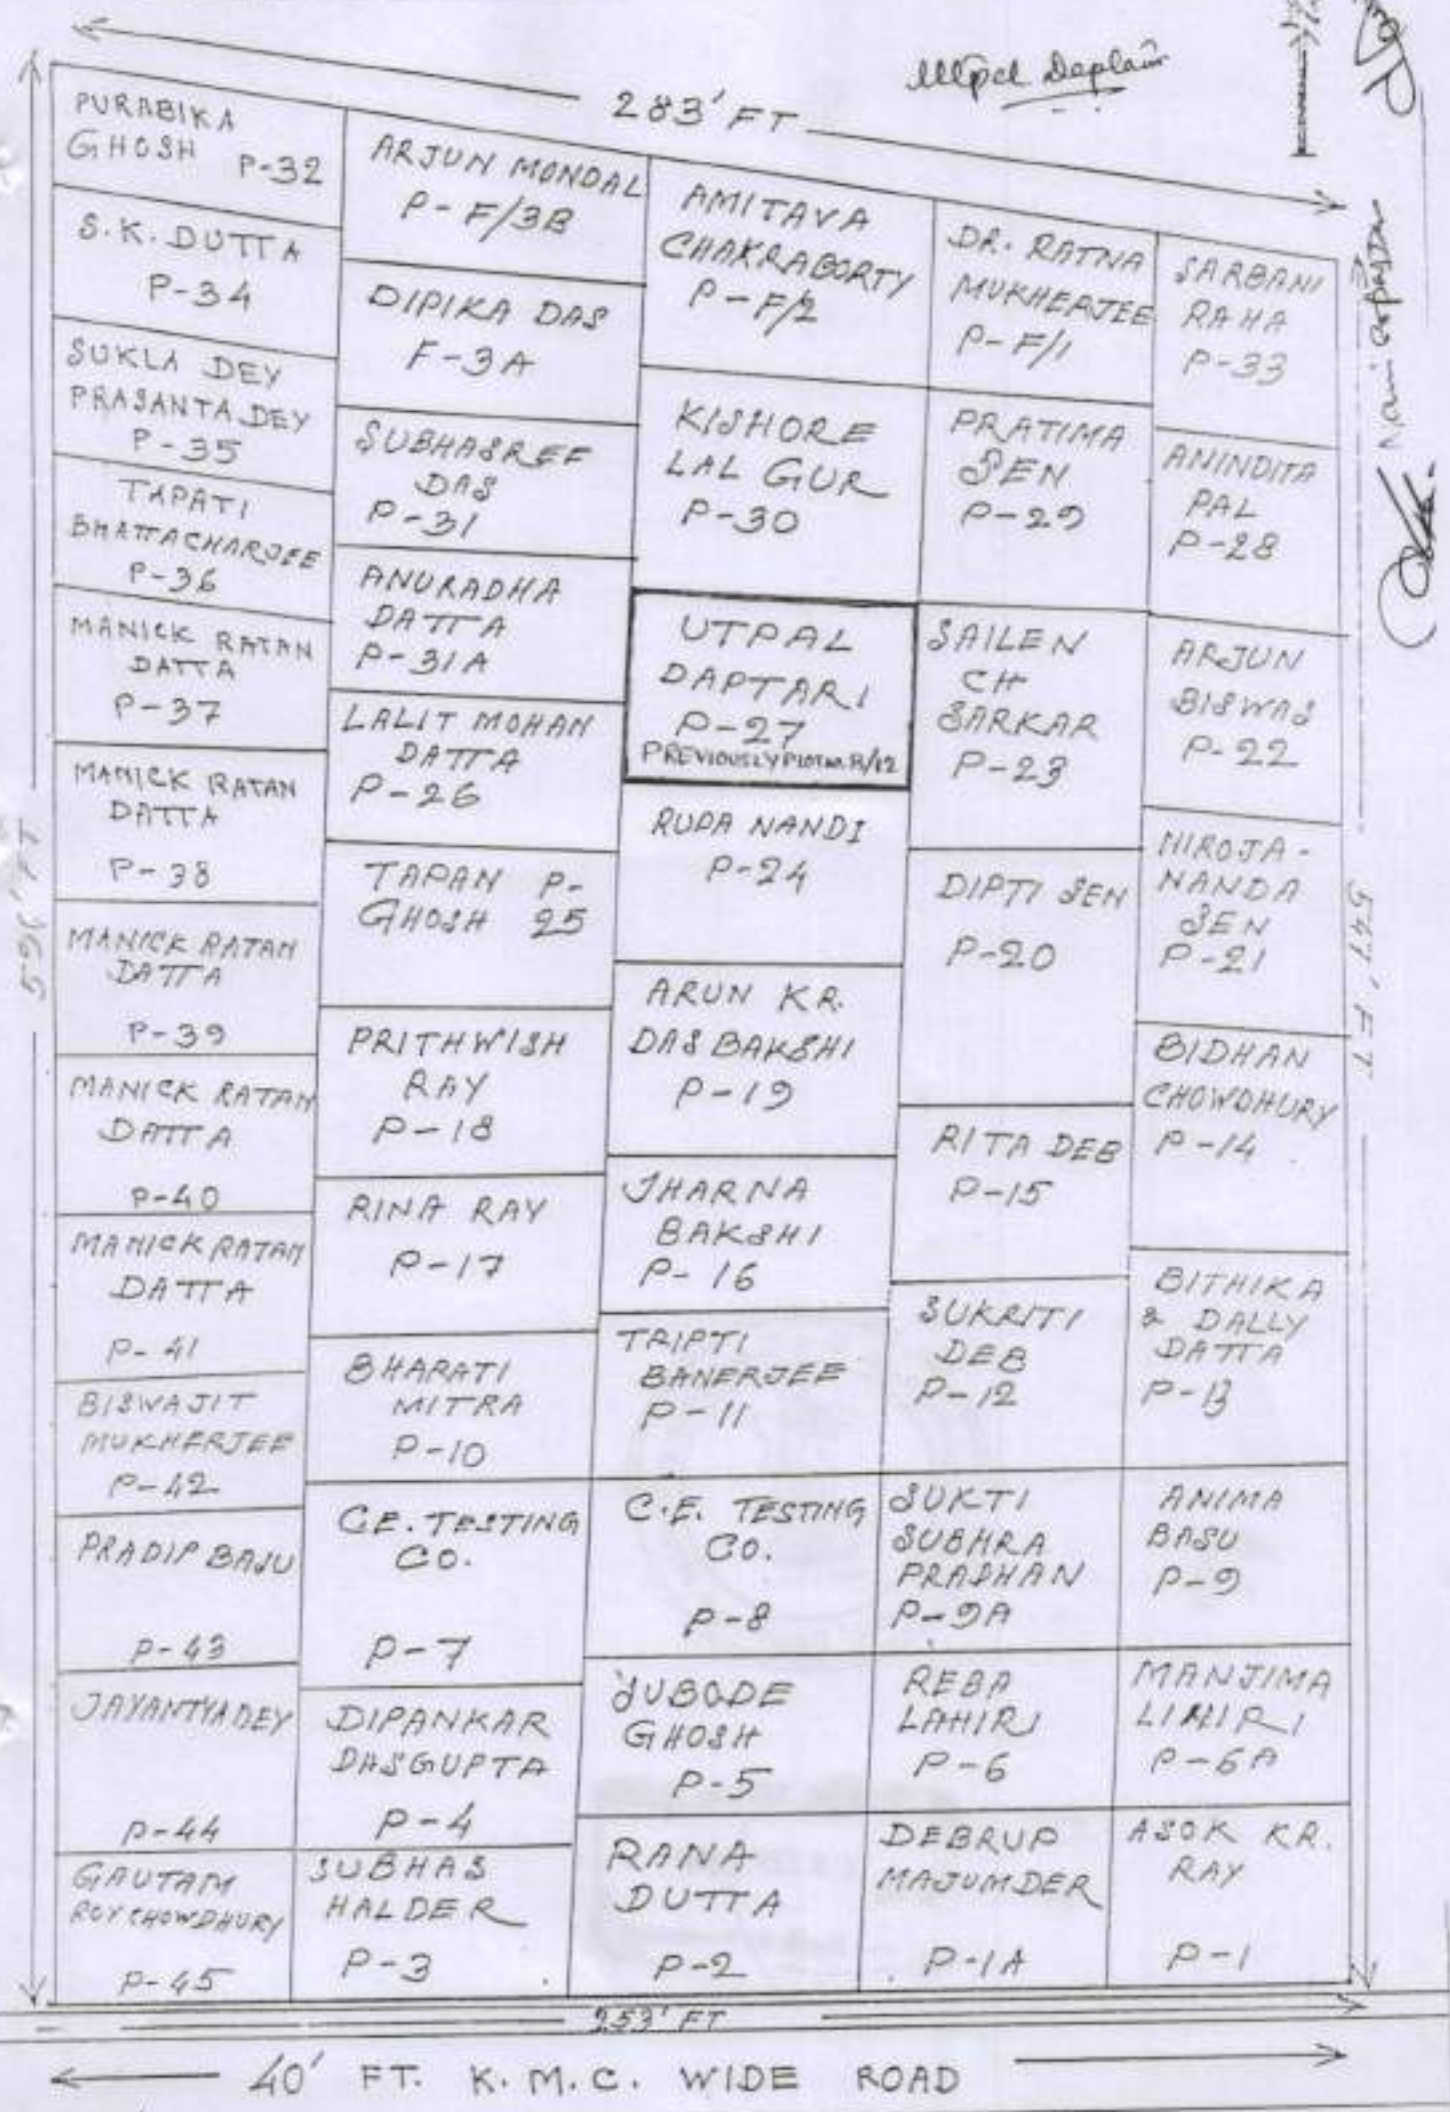 283' FT
PURABIKA
GHOSH P-32
S.K. DUTTA
P-34
SUKLA DEY
PRASANTA DEY
P-35
TAPATI
BHATTACHARJEE
P-36
MANICK RATAN
DATTA
P-37
MANICK RATAN
DATTA
P-38
MANICK RATAN
DATTA
P-39
MANICK RATAN
DATTA
P-40
MANICK RATAN
DATTA
P-41
BISWAJIT
MUKHERJEE
P-42
PRADIP BASU
P-43
JAYANTYA DEY
P-44
GAUTAM
ROY CHOWDHURY
P-45
ARJUN MONDAL
P-F/3B
DIPIKA DAS
F-3A
SUBHASREE
DAS
P-31
ANURADHA
DATTA
P-31A
LALIT MOHAN
DATTA
P-26
TAPAN P-
GHOSH 25
PRITHWISH
RAY
P-18
RINA RAY
P-17
BHARATI
MITRA
P-10
C.E. TESTING
CO.
P-7
DIPANKAR
DASGUPTA
P-4
SUBHAS
HALDER
P-3
AMITAVA
CHAKRABORTY
P-F/2
KISHORE
LAL GUR
P-30
UTPAL
DAPTARI
P-27
PREVIOUSLY PLOT NO. B/12
RUPA NANDI
P-24
ARUN KR.
DAS BAKSHI
P-19
JHARNA
BAKSHI
P-16
TRIPTI
BANERJEE
P-11
C.E. TESTING
CO.
P-8
SUBODE
GHOSH
P-5
RANA
DUTTA
P-2
DR. RATNA
MUKHERJEE
P-F/1
PRATIMA
SEN
P-29
SAILEN
CH
SARKAR
P-23
DIPTI SEN
P-20
RITA DEB
P-15
SUKRITI
DEB
P-12
SUKTI
SUBHRA
PRADHAN
P-9A
REBA
LAHIRI
P-6
DEBRUP
MAJUMDER
P-1A
SARBANI
RAHA
P-33
ANINDITA
PAL
P-28
ARJUN
BISWAS
P-22
NIROJA-
NANDA
SEN
P-21
BIDHAN
CHOWDHURY
P-14
BITHIKA
& DALLY
DATTA
P-13
ANIMA
BASU
P-9
MANJIMA
LIHIRI
P-6A
ASOK KR.
RAY
P-1
253' FT
40' FT. K.M.C. WIDE ROAD